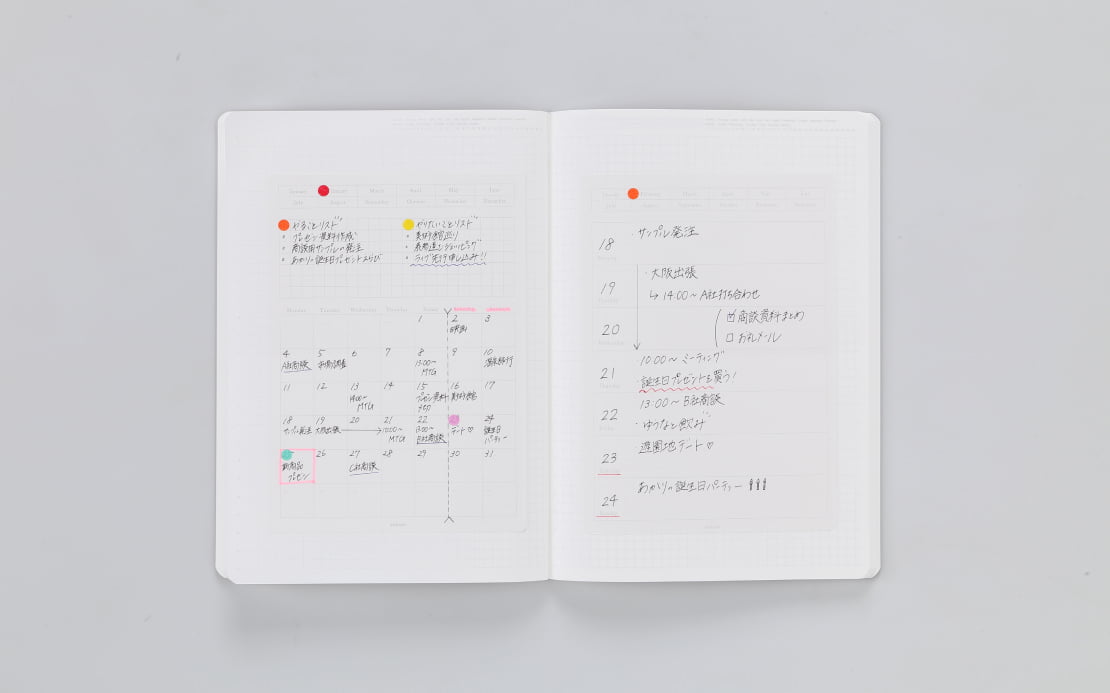 January March April May June
July August September October November December
やることリスト
・プレゼン資料作成
・商談用サンプルの発注
・あかりの誕生日プレゼントえらび
やりたいことリスト
・美術館巡り
・ライブ先行申し込み!!
Monday Tuesday Wednesday Thursday Friday Saturday Sunday
1 2 3
映画
4 5 6 7 8 9 10
A社商談 市場調査 13:00~ 温泉旅行
MTG
11 12 13 14 15 16 17
14:00~ プレゼン資料 美術館
MTG 〆切
18 19 20 21 22 24
サンプル発注 大阪出張 10:00~ 13:00~ デート♡ 誕生日
MTG B社商談 パーティー
26 27 28 29 30 31
新商品 C社商談
プレゼン
18 ・サンプル発注
Monday
19 ・大阪出張
Tuesday
↳ 14:00~A社打ち合わせ
20 ☑商談資料まとめ
Wednesday
□お礼メール
21 ・10:00~ミーティング
Thursday
・誕生日プレゼントを買う!
22 13:00~B社商談
Friday
・ゆうなと飲み
23 遊園地デート♡
Saturday
24 あかりの誕生日パーティー
Sunday